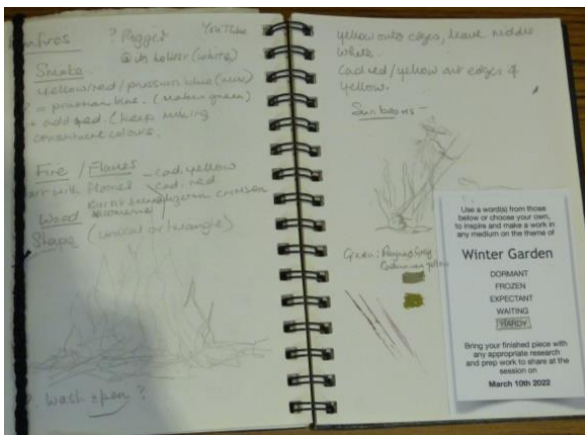 ? Rigger YouTube
Smoke
yellow/red/prussian blue (mix)
prussian blue. (makes green)
add red (keep mixing
constituent colours.
Fire / Flames - cad. yellow
with flames cad. red
crimson
Wood
Shape (conical or triangle)
Wash + pen ?
yellow onto edges, leave middle
white.
Cad red/yellow out edges of
yellow.
Sunbeams -
Green: Paynes Grey
Cadmium yellow
Use a word(s) from those
below or choose your own,
to inspire and make a work in
any medium on the theme of
Winter Garden
DORMANT
FROZEN
EXPECTANT
WAITING
HARDY
Bring your finished piece with
any appropriate research
and prep work to share at the
session on
March 10th 2022